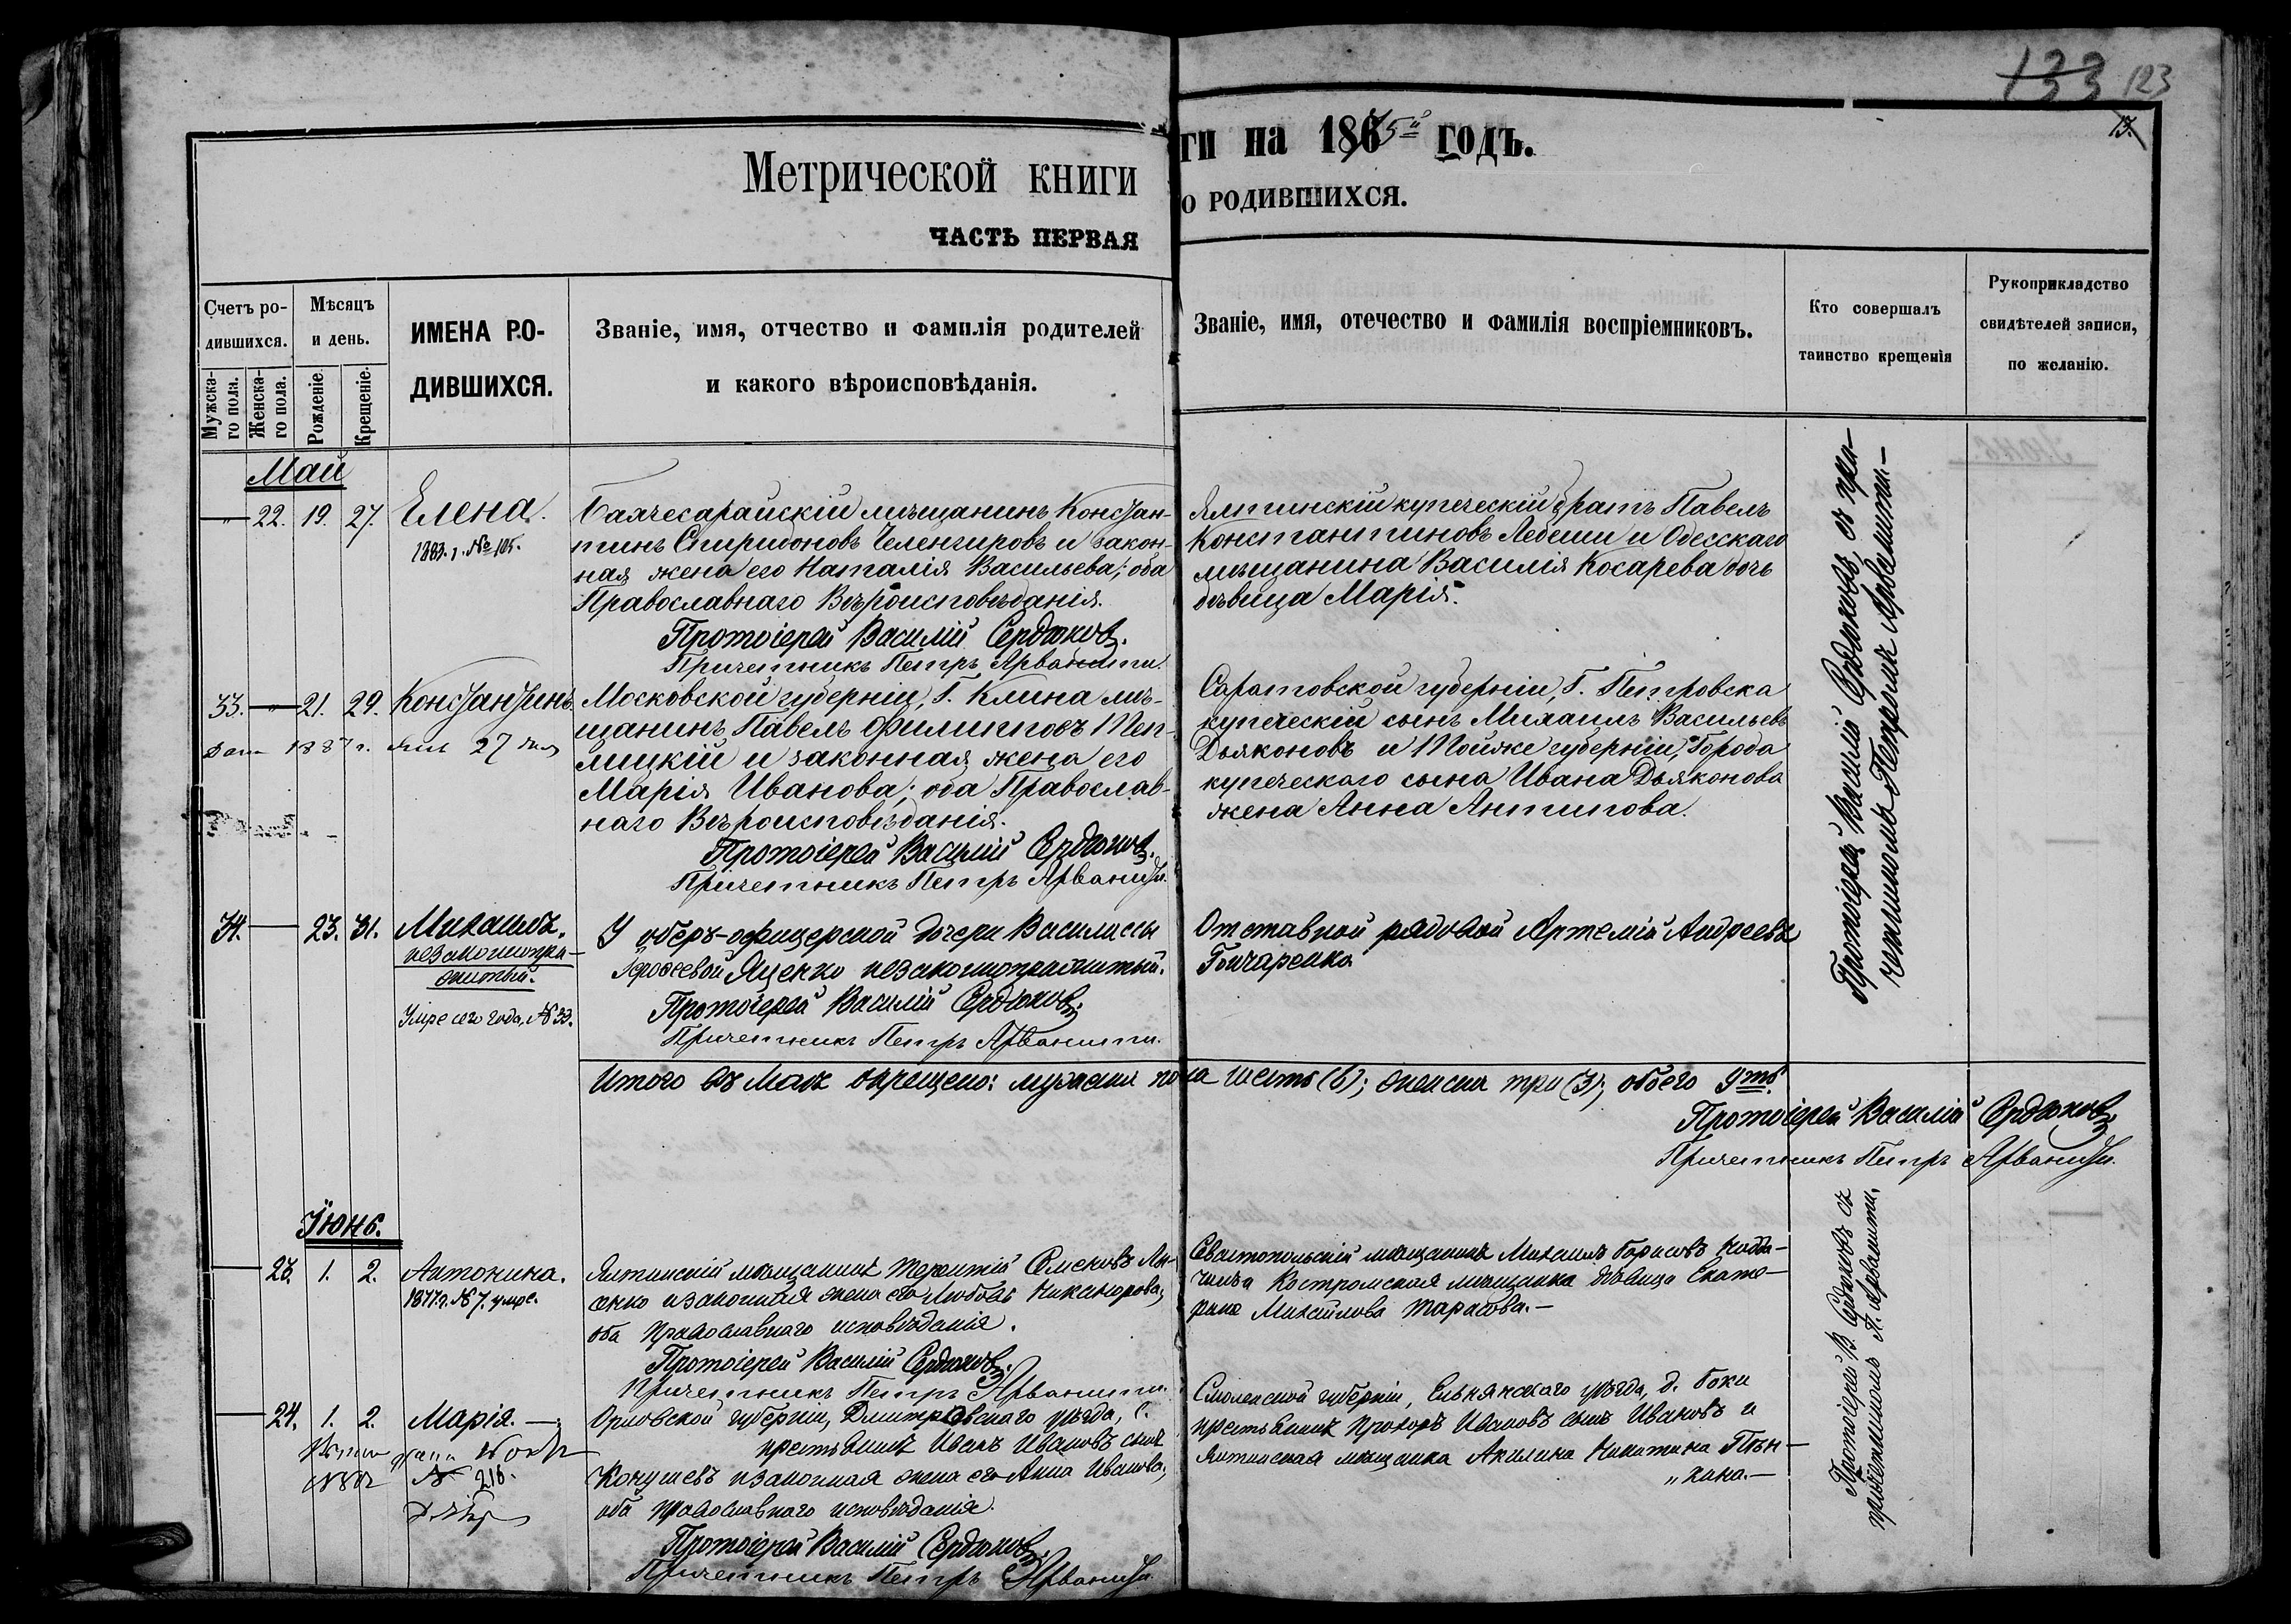 133 123
13.
Метрической книги
ги на 1865й годъ.
ЧАСТЬ ПЕРВАЯ
о родившихся.
Счетъ ро-
дившихся.
Мужска-
го пола.
Женска-
го пола.
Мѣсяцъ
и день.
Рожденіе.
Крещеніе.
ИМЕНА РО-
ДИВШИХСЯ.
Званіе, имя, отчество и фамилія родителей
и какого вѣроисповѣданія.
Званіе, имя, отечество и фамилія воспріемниковъ.
Кто совершалъ
таинство крещенія
Рукоприкладство
свидѣтелей записи,
по желанію.
Май
" 22. 19. 27. Елена.
1883. г. № 105.
Бахчесарайскій мѣщанинъ Констан-
тинъ Спиридоновъ Челенгировъ и закон-
ная жена его Наталія Васильева; оба
Православнаго Вѣроисповѣданія.
Протоіерей Василій Сердюковъ.
Причетникъ Петръ Арванити.
Ялтинскій купеческій братъ Павелъ
Константиновъ Лебеши и Одесскаго
мѣщанина Василія Косарева дочь
дѣвица Марія.
Протоіерей Василій Сердюковъ съ при-
четникомъ Петромъ Арванити.—
33. " 21. 29. Константинъ
1887 г. 27
Московской губерніи, Г. Клина мѣ-
щанинъ Павелъ Филипповъ Теп-
лицкій и законная жена его
Марія Иванова; оба Православ-
наго Вѣроисповѣданія.
Протоіерей Василій Сердюковъ.
Причетникъ Петръ Арванити.
Саратовской губерніи, Г. Петровска
купеческій сынъ Михаилъ Васильевъ
Дьяконовъ и Тойже губерніи, Города
купеческаго сына Ивана Дьяконова
жена Анна Антипова.
34. 23. 31. Михаилъ.
незаконнорж-
денный.
Умре сего года, № 33.
У оберъ-офицерской дочери Василиссы
Яценко незаконнорожденный.
Протоіерей Василій Сердюковъ.
Причетникъ Петръ Арванити.
Отставной рядовой Артемій Андреевъ
Гончаренко
Итого въ Маѣ окрещено: мужеска пола шесть (6); женска три (3); обоего 9ть.
Протоіерей Василій Сердюковъ
Причетникъ Петръ Арванити.
Іюнь.
23. 1. 2. Антонина.
1877 г. № 7. умре.
Ялтинскій мѣщанинъ Терентій
и законная жена его Любовь Никанорова,
оба православнаго исповѣданія.
Протоіерей Василій Сердюковъ.
Причетникъ Петръ Арванити.
Севастопольскій мѣщанинъ Михаилъ Борисовъ
Костромская мѣщанка дѣвица Екате-
рина Михайлова Тарасова.—
Протоіерей В. Сердюковъ съ
причетникомъ П. Арванити.
24. 1. 2. Марія.
№ 216.
Орловской губерніи, Дмитровскаго уѣзда, с.
крестьянинъ Иванъ Ивановъ сынъ
Конушевъ и законная жена его Анна Иванова,
оба православнаго исповѣданія.
Протоіерей Василій Сердюковъ.
Причетникъ Петръ Арванити.
Смоленской губерніи, Ельнянскаго уѣзда, д. Боки
крестьянинъ Прохоръ Ивановъ сынъ Ивановъ и
Ялтинская мѣщанка Акилина Никитина Пѣн-
„кина.—